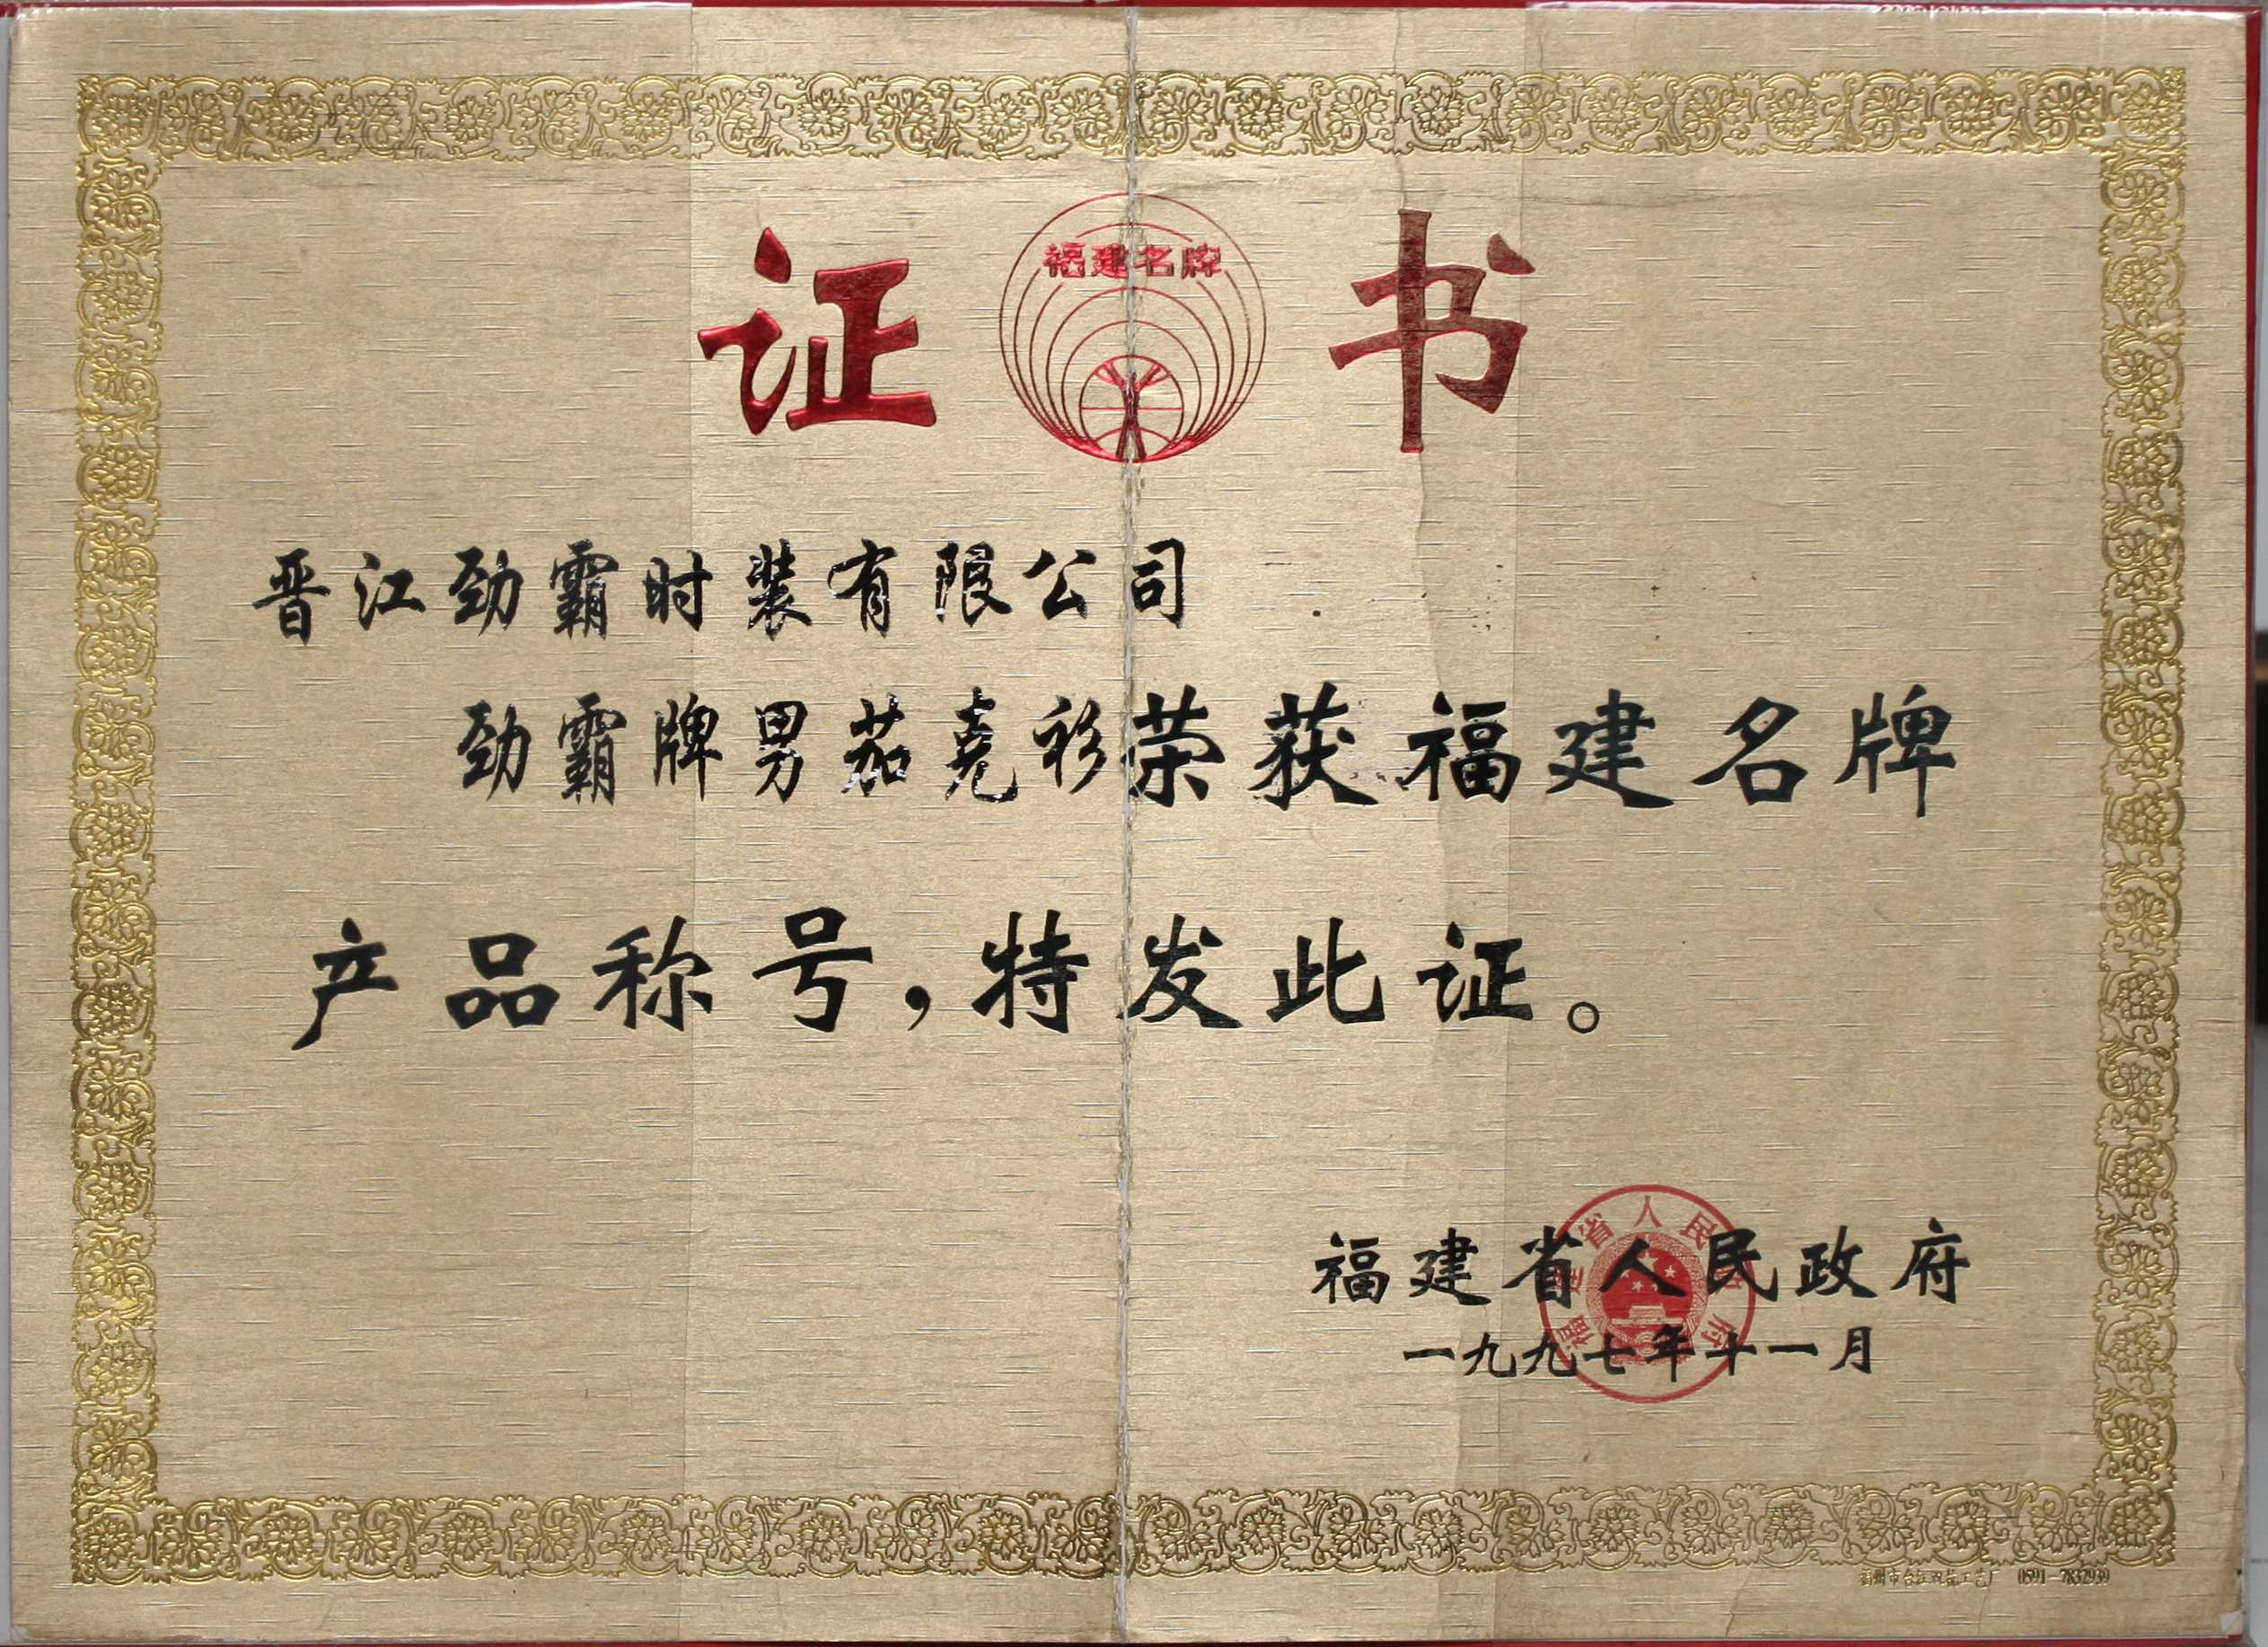 证 福建名牌 书
晋江劲霸时装有限公司
劲霸牌男茄克衫荣获福建名牌
产品称号，特发此证。
福建省人民政府
福建省人民政府
一九九七年十一月
0591-7832939